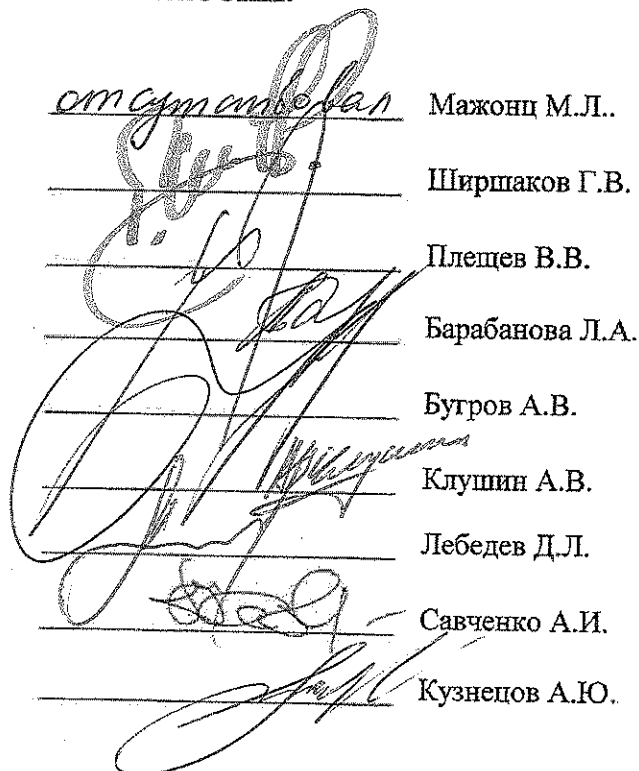 отсутствовал Мажонц М.Л..
Ширшаков Г.В.
Плещев В.В.
Барабанова Л.А.
Бугров А.В.
Клушин А.В.
Лебедев Д.Л.
Савченко А.И.
Кузнецов А.Ю.